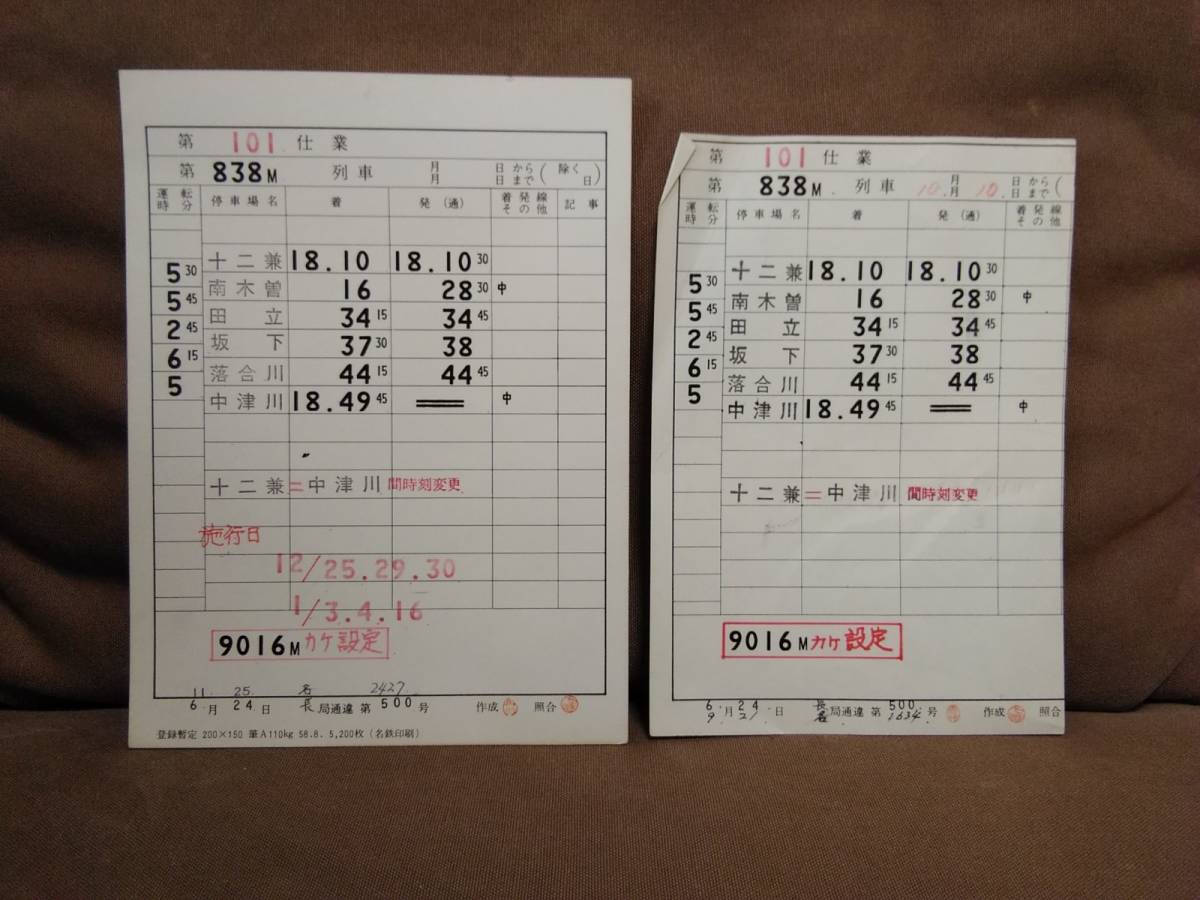 第 101 仕業
第 838M 列車 月 日から ( 除く
月 日まで 日)
運転時分 停車場名 着 発(通) 着発線その他 記事
十二兼 18.10 18.10 30
5 30
南木曽 16 28 30 中
5 45
田立 34 15 34 45
2 45
坂下 37 30 38
6 15
落合川 44 15 44 45
5
中津川 18.49 45 == 中
十二兼=中津川 間時刻変更
施行日
12/25.29.30
1/3.4.16
9016M カケ設定
11 25 名 2427
6月24日 長局通達 第500号 作成 照合
登録暫定 200×150 筆A110kg 58.8. 5,200枚 (名鉄印刷)
第 101 仕業
第 838M 列車 10.月 10.日から (
月 日まで
運転時分 停車場名 着 発(通) 着発線その他
十二兼 18.10 18.10 30
5 30
南木曽 16 28 30 中
5 45
田立 34 15 34 45
2 45
坂下 37 30 38
6 15
落合川 44 15 44 45
5
中津川 18.49 45 == 中
十二兼=中津川 間時刻変更
9016M カケ設定
6 24 長 500
9月21日 名局通達 第1634号 作成 照合